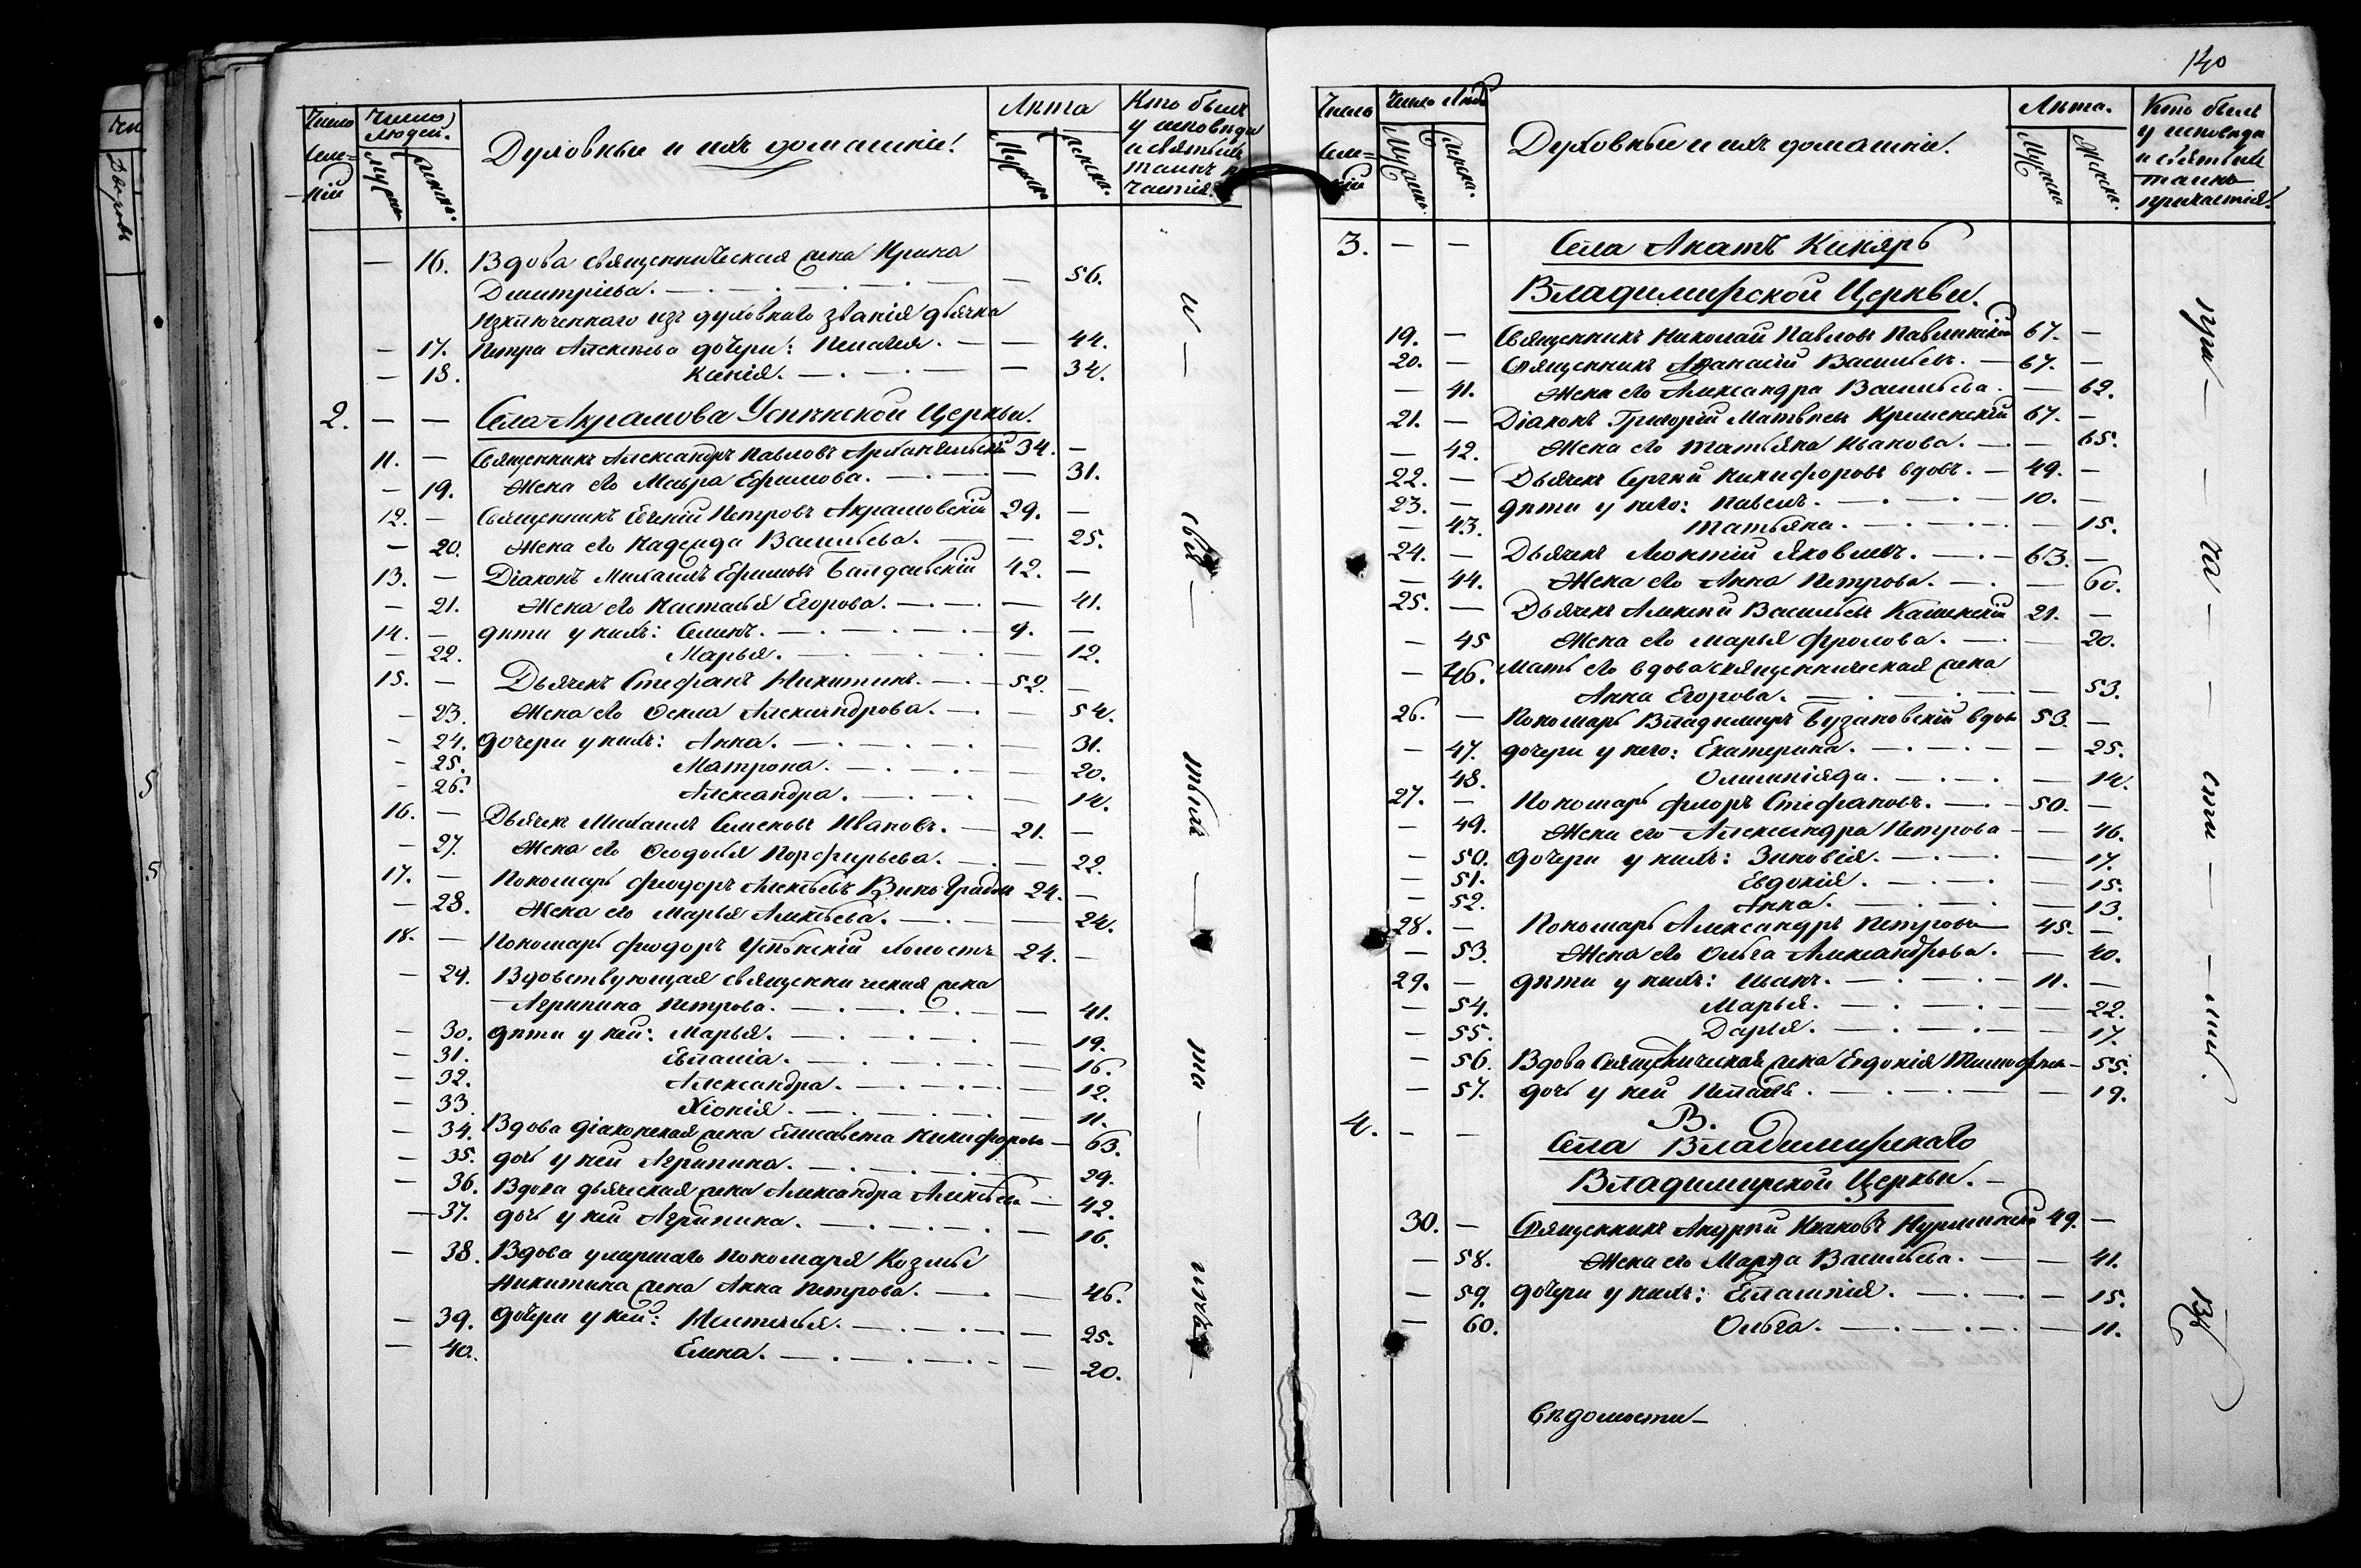 Число Селе=ній
Число людей.
Мужеск.
Женск.
Духовные и ихъ домашніе.
Лѣта
Мужеск.
Женск.
Кто были
у исповѣди
и святыхъ
таинъ
— 16. Вдова священническая жена Ирина
Дмитріева. — 56.
Изключеннаго изъ духовнаго званія дьячка
— 17. Петра Алексѣева дочери: Пелагея. — 44.
— 18. Ксенія. — 34.
2. — — Села Акрамова Успенской Церкви.
11. — Священникъ Александръ Павловъ Архангельскій 34. —
— 19. Жена его Мавра Ефимова. — 31.
12. — Священникъ Евгеній Петровъ Акрамовскій 29. —
— 20. Жена его Надежда Васильева. — 25.
13. — Діаконъ Михаилъ Ефимовъ 42. —
— 21. Жена его Настасья Егорова. — 41.
14. — дѣти у нихъ: Семенъ. — 9. —
— 22. Марья. — 12.
15. — Дьячекъ Стефанъ Никитинъ. — 52. —
— 23. Жена его Александрова. — 54.
— 24. дочери у нихъ: Анна. — 31.
— 25. Матрона. — 20.
— 26. Александра. — 14.
16. — Дьячекъ Михаилъ Семеновъ Ивановъ. — 21. —
— 27. Жена его Ѳеодосія Порфирьева. — 22.
17. — Пономарь Феодоръ Алексѣевъ Виноградовъ 24. —
— 28. Жена его Марья Алексѣева. — 24.
18. — Пономарь Феодоръ Успенскій холостъ 24. —
— 29. Вдовствующая священническая жена
Агрипина Петрова. — 41.
— 30. дѣти у ней: Марья. — 19.
— 31. Евлампія. — 16.
— 32. Александра. — 12.
— 33. Хіонія. — 11.
— 34. Вдова діаконская жена Елисавета Никифорова — 63.
— 35. дочь у ней Агрипина. — 29.
— 36. Вдова дьяческая жена Александра Алексѣева — 42.
— 37. дочь у ней Агрипина. — 16.
— 38. Вдова умершаго пономаря Козмы
Никитина жена Анна Петрова. — 46.
— 39. дочери у ней: Настасья. — 25.
— 40. Елена. — 20.
и — свя — тыхъ — та —
140
Число Семей
Число Людей
Мужеск.
Женска.
Духовные и ихъ домашніе.
Лѣта.
Мужеска
Женска.
Кто былъ
у исповѣди
и святыхъ
таинъ
причастія.
3. — — Села Акатъ Киняръ
Владимирской Церкви.
19. — Священникъ Николай Павловъ 67. —
20. — Священникъ Афанасій Васильевъ. — 67. —
— 41. Жена его Александра Васильева. — 62.
21. — Діаконъ Григорій Матвѣевъ Кременскій 67. —
— 42. Жена его Татьяна Иванова. — 65.
22. — Дьячекъ Сергѣй Никифоровъ вдовъ. — 49. —
23. — дѣти у него: Павелъ. — 10. —
— 43. Татьяна. — 15.
24. — Дьячекъ Леонтій Яковлевъ. — 63. —
— 44. Жена его Анна Петрова. — 60.
25. — Дьячекъ Алексѣй Васильевъ 21. —
— 45 Жена его Марья Фролова. — 20.
— 46. Мать его вдова священническая жена
Анна Егорова. — 53.
26. — Пономарь Владимиръ Бузановскій вдовъ 53. —
— 47. дочери у него: Екатерина. — 25.
48. Олимпіяда. — 14.
27. — Пономарь Флоръ Стефановъ. — 50. —
— 49. Жена его Александра Петрова — 46.
— 50. дочери у нихъ: Зиновія. — 17.
— 51. Евдокія. — 15.
— 52. Анна. — 13.
28. — Пономарь Александръ Петровъ — 45. —
— 53. Жена его Ольга Александрова. — 40.
29. — дѣти у нихъ: Иванъ. — 11. —
— 54. Марья. — 22.
— 55. Дарья. — 17.
— 56. Вдова Священническая жена Евдокія Тимофѣева — 55.
— 57. дочь у ней Пелагея. — 19.
4. — — В.
Села Владимирскаго
Владимирской Церкви. —
30. — Священникъ Андрей Ивановъ Нурминскій 49. —
— 58. Жена его Марфа Васильева. — 41.
— 59. дочери у нихъ: Евлампія. — 15.
— 60. Ольга. — 11.
при — ча — сти — лись.
Въ
Вѣдомости —